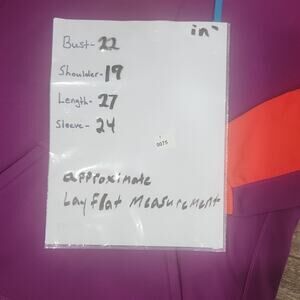 in"
Bust- 22
Shoulder- 19
Length- 27
Sleeve- 24
0075
approximate
Lay flat Measurement